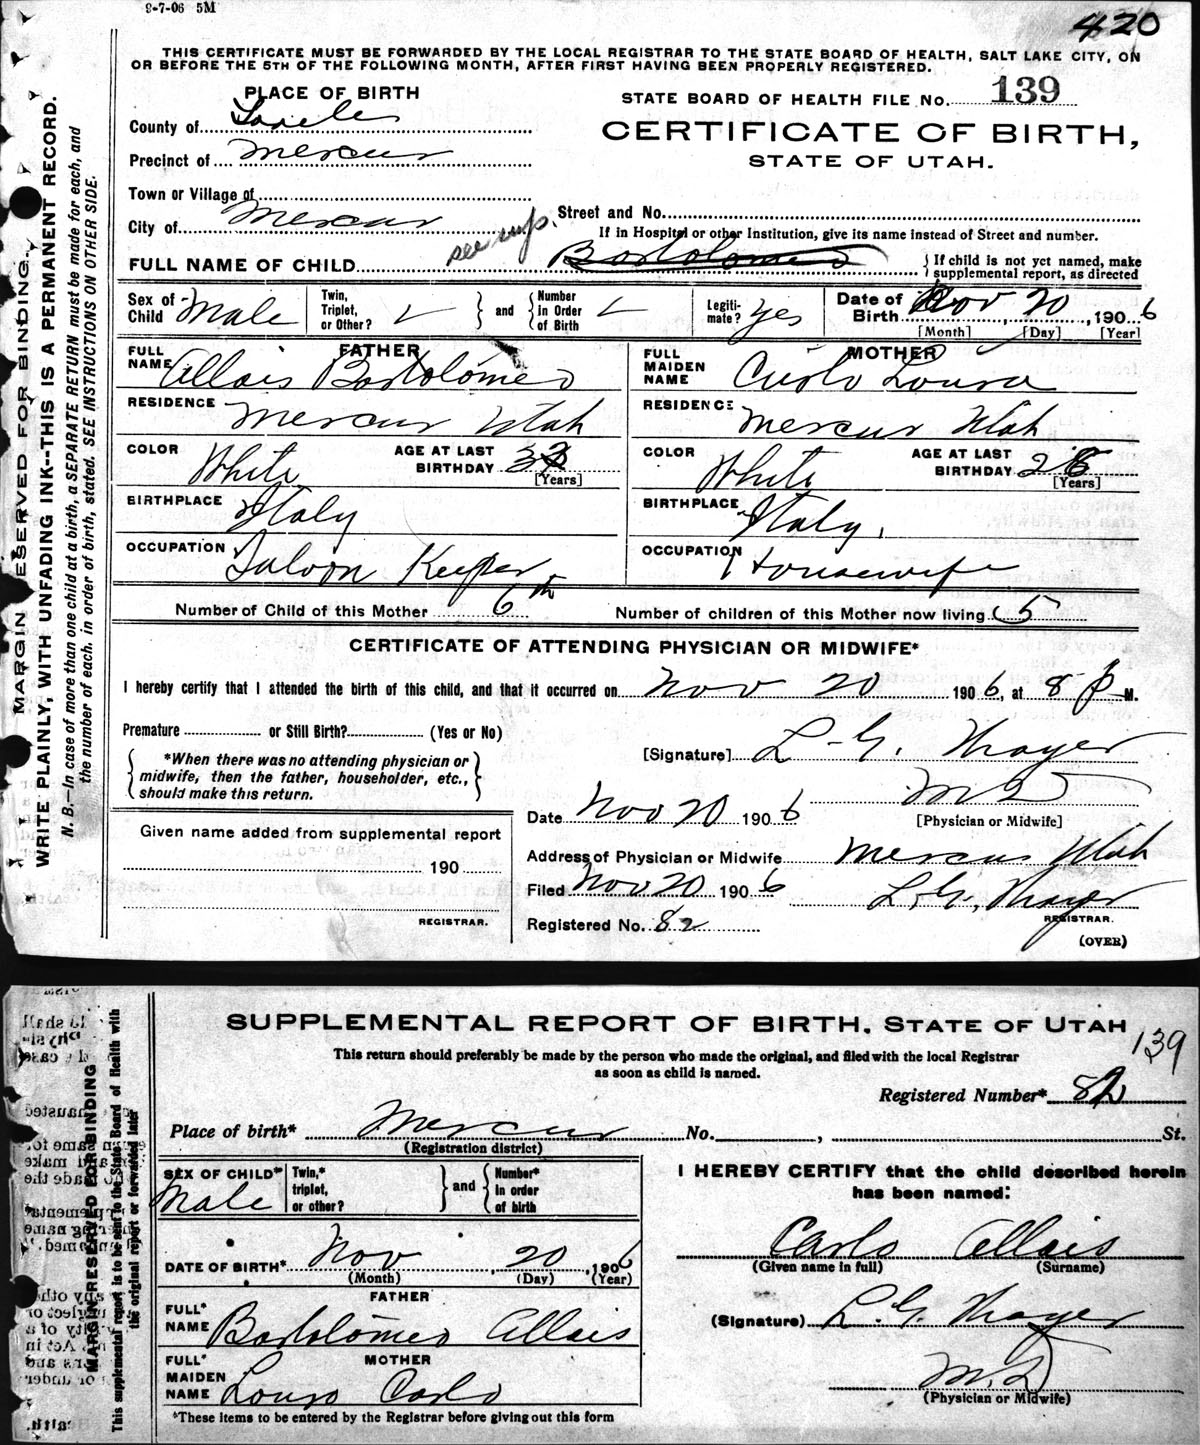 9-7-06 5M
420
THIS CERTIFICATE MUST BE FORWARDED BY THE LOCAL REGISTRAR TO THE STATE BOARD OF HEALTH, SALT LAKE CITY, ON
OR BEFORE THE 5TH OF THE FOLLOWING MONTH, AFTER FIRST HAVING BEEN PROPERLY REGISTERED.
PLACE OF BIRTH
STATE BOARD OF HEALTH FILE No. 139
County of Tooele
CERTIFICATE OF BIRTH,
Precinct of Mercur
STATE OF UTAH.
Town or Village of
City of Mercur
Street and No.
see sup.
If in Hospital or other Institution, give its name instead of Street and number.
FULL NAME OF CHILD Bartolomeo
{If child is not yet named, make
supplemental report, as directed
Sex of Child Male
Twin, Triplet, or Other?
and
Number in Order of Birth
Legiti-mate? yes
Date of Birth Nov 20, 1906
[Month] [Day] [Year]
FATHER
FULL NAME Allais Bartolomeo
MOTHER
FULL MAIDEN NAME Curlo Loura
RESIDENCE Mercur Utah
RESIDENCE Mercur Utah
COLOR White
AGE AT LAST BIRTHDAY 33 [Years]
COLOR White
AGE AT LAST BIRTHDAY 28 [Years]
BIRTHPLACE Italy
BIRTHPLACE Italy.
OCCUPATION Saloon Keeper
OCCUPATION Housewife
Number of Child of this Mother 6th
Number of children of this Mother now living 5
CERTIFICATE OF ATTENDING PHYSICIAN OR MIDWIFE*
I hereby certify that I attended the birth of this child, and that it occurred on Nov 20 1906, at 8 P M.
Premature or Still Birth? (Yes or No)
[Signature] L. G. Thayer
*When there was no attending physician or
midwife, then the father, householder, etc.,
should make this return.
M D
[Physician or Midwife]
Date Nov 20 1906
Given name added from supplemental report
190
REGISTRAR.
Address of Physician or Midwife Mercur Utah
Filed Nov 20 1906 L. G. Thayer
REGISTRAR.
Registered No. 82
(OVER)
MARGIN RESERVED FOR BINDING.
WRITE PLAINLY, WITH UNFADING INK--THIS IS A PERMANENT RECORD.
N. B.—In case of more than one child at a birth, a SEPARATE RETURN must be made for each, and
the number of each, in order of birth, stated. SEE INSTRUCTIONS ON OTHER SIDE.
SUPPLEMENTAL REPORT OF BIRTH, STATE OF UTAH
139
This return should preferably be made by the person who made the original, and filed with the local Registrar
as soon as child is named.
Registered Number* 82
Place of birth* Mercur No. , St.
(Registration district)
SEX OF CHILD* Male
Twin,* triplet, or other?
and
Number* in order of birth
I HEREBY CERTIFY that the child described herein
has been named:
Carlo Allais
(Given name in full) (Surname)
DATE OF BIRTH* Nov, 20, 1906
(Month) (Day) (Year)
FATHER
FULL* NAME Bartolomeo Allais
(Signature) L. G. Thayer
MOTHER
FULL* MAIDEN NAME Louro Carlo
M. D
(Physician or Midwife)
*These items to be entered by the Registrar before giving out this form
MARGIN RESERVED FOR BINDING
This supplemental report is to be sent to the State Board of Health with
the original report or forwarded later